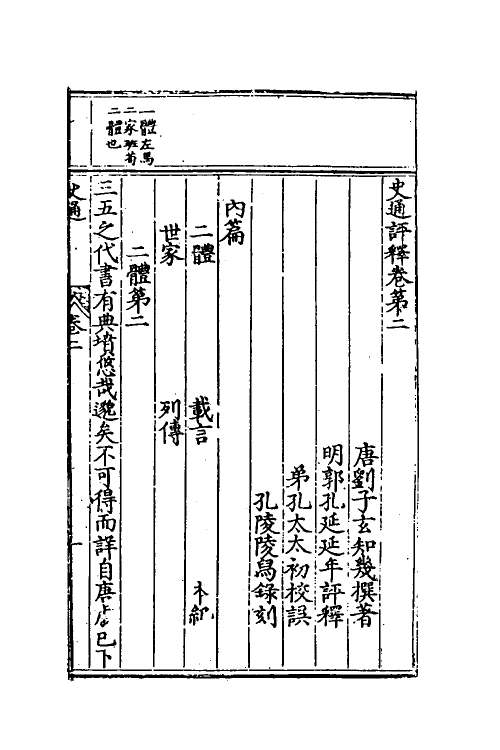 史通評釋卷第二
唐劉子玄知幾撰著
明郭孔延延年評釋
弟孔太太初校誤
孔陵陵舄錄刻
內篇
二體　載言　本紀
世家　列傳
二體第二
三五之代書有典墳悠哉邈矣不可得而詳自唐虞已下
一體左馬
二家班荀
二體也
史通
卷二
一